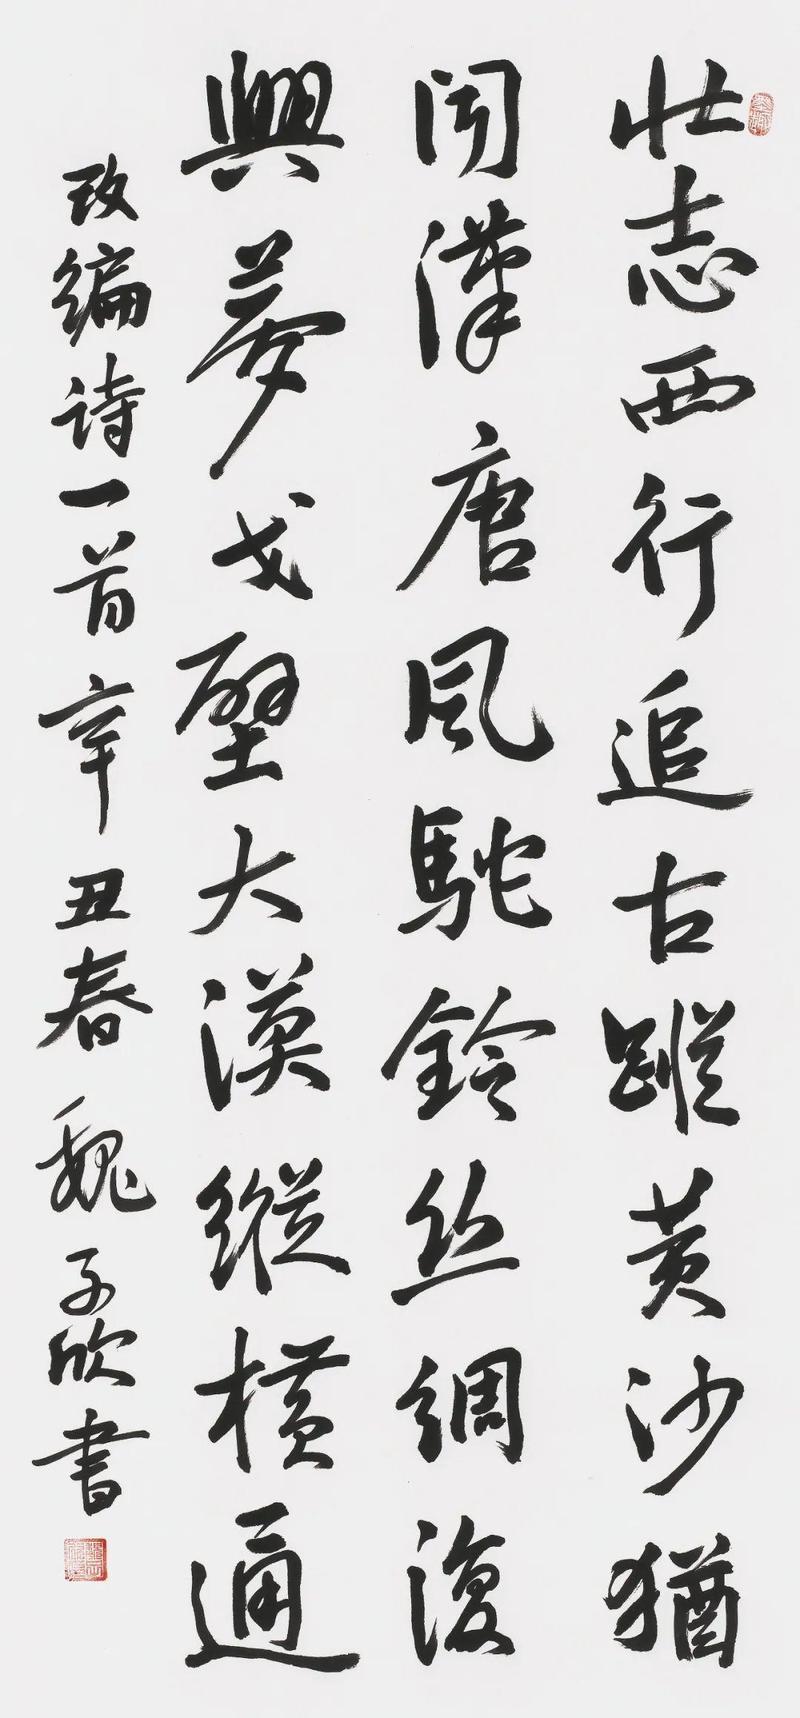 壮志西行追古蹤黄沙猶
闻漢唐風駝鈴丝綢復
興夢戈壁大漠縱橫通
改编诗一首辛丑春魏子欣書